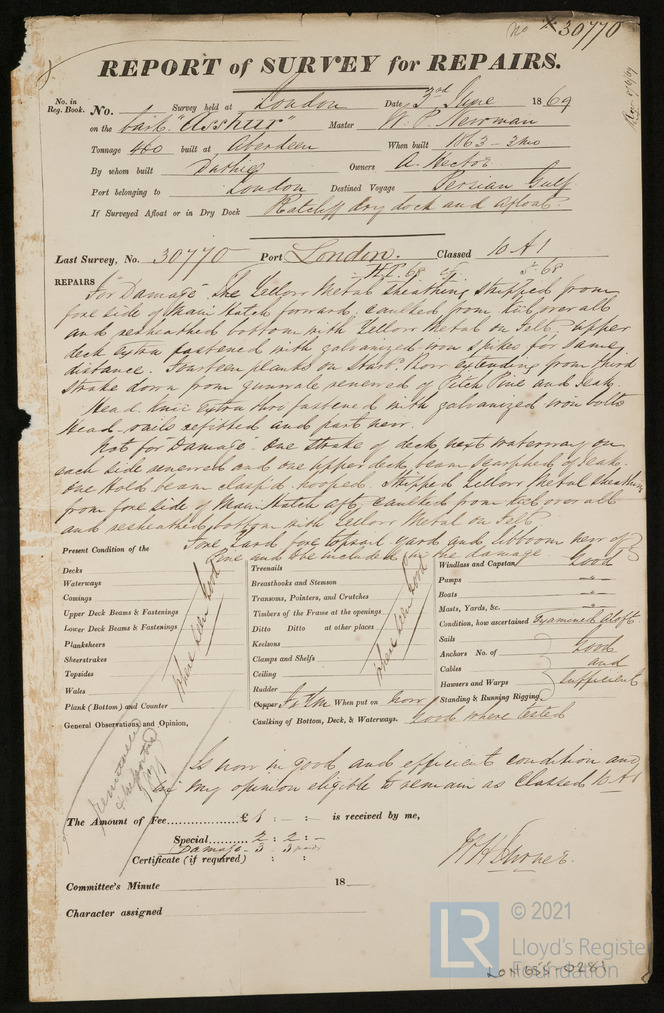 No 30770
REPORT of SURVEY for REPAIRS.
No. in Reg. Book. No. Survey held at London Date 3rd June 1869
on the bark "Asshur" Master W. P. Newman
Tonnage 460 built at Aberdeen When built 1863 - 3mo
By whom built Duthie Owners A. Hector
Port belonging to London Destined Voyage Persian Gulf
If Surveyed Afloat or in Dry Dock Ratcliff dry dock and afloat.
Last Survey, No. 30770 Port London. Classed 10 A 1
REPAIRS
For "Damage". The Yellow Metal Sheathing stripped from
fore side of Main Hatch forward, caulked from keel over all
and resheathed bottom with Yellow Metal on Felt, upper
deck extra fastened with galvanized iron spikes for same
distance. Fourteen planks on Starbd. Bow extending from third
strake down from gunwale renewed of Pitch Pine and Teak.
Head knee extra thro fastened with galvanized iron bolts
Head rails refitted and part new.
Not for "Damage". One strake of deck next waterway on
each side renewed and one upper deck beam scarphed of teak.
One Hold beam clasp'd hooped. Stripped Yellow Metal sheathing
from fore side of Main Hatch aft, caulked from keel over all
and resheathed bottom with Yellow Metal on Felt
Fore Yard fore topsail yard and jibboom new of
Pine and be included in the damage
Present Condition of the
Decks
Waterways
Comings
Upper Deck Beams & Fastenings
Lower Deck Beams & Fastenings
Planksheers
Sheerstrakes
Topsides
Wales
Plank (Bottom) and Counter
where seen Good
Treenails
Breasthooks and Stemson
Transoms, Pointers, and Crutches
Timbers of the Frame at the openings
Ditto Ditto at other places
Keelsons
Clamps and Shelfs
Ceiling
Rudder
Copper Y. M. When put on now
Caulking of Bottom, Deck, & Waterways. Good where tested
where seen Good
Windlass and Capstan Good
Pumps -"-
Boats -"-
Masts, Yards, &c. -"-
Condition, how ascertained Examined Aloft
Sails
Anchors No. of
Cables
Hawsers and Warps
Standing & Running Rigging
Good
and
sufficient
General Observations and Opinion,
Is now in good and efficient condition and
in my opinion eligible to remain as Classed 10 A 1
The Amount of Fee £1 : - : is received by me,
Special 2 : 2 : -
Damage - 3 : 3
Certificate (if required) : :
Committee's Minute 18
Character assigned
LR
© 2021
Lloyd's Register
Foundation
LON 655-0281